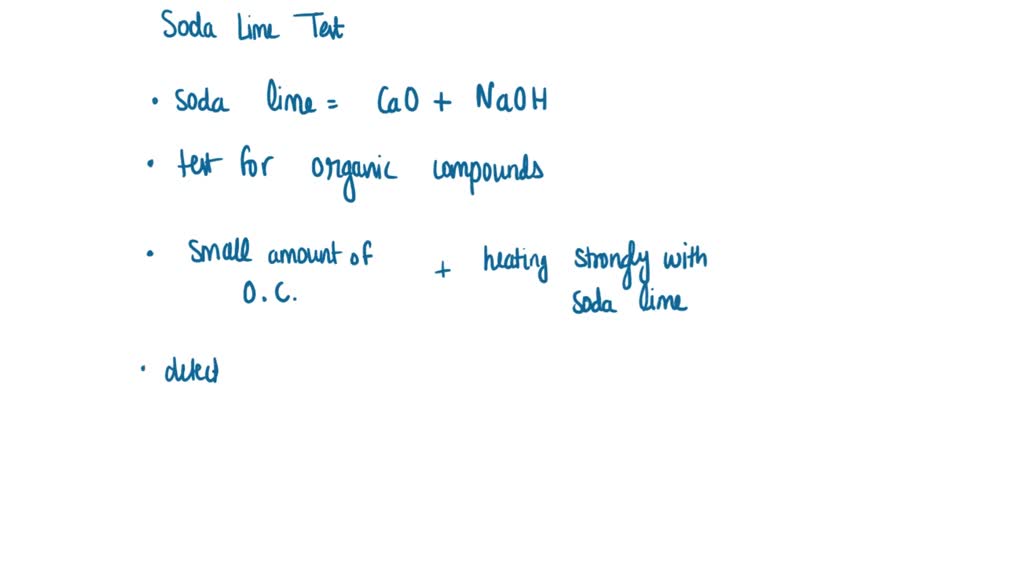 Soda Lime Test
• soda lime = CaO + NaOH
• test for organic compounds
• Small amount of O.C. + heating strongly with soda lime
• detect